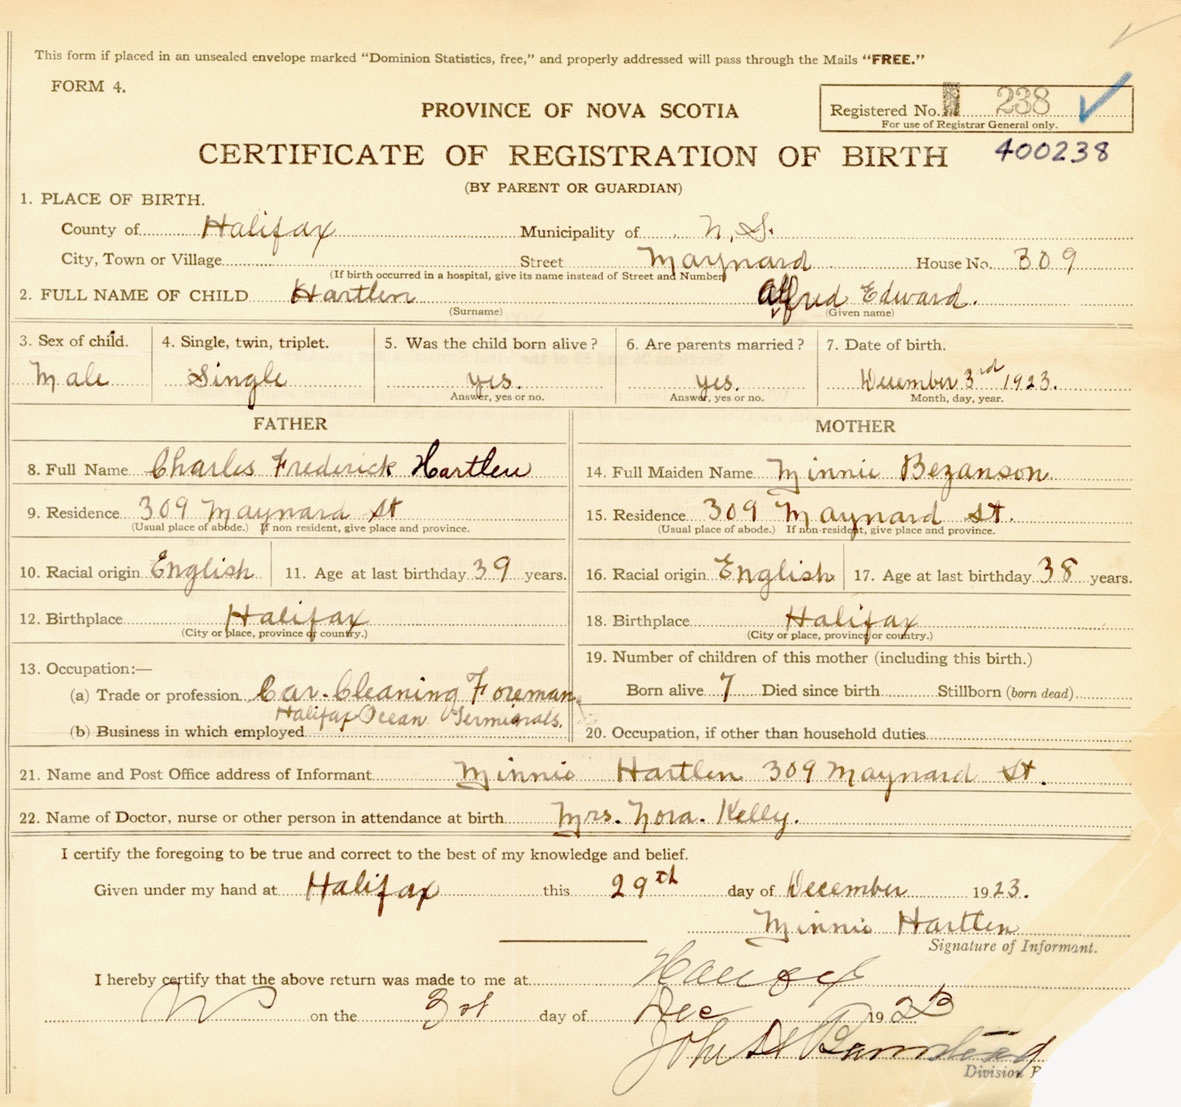 This form if placed in an unsealed envelope marked “Dominion Statistics, free,” and properly addressed will pass through the Mails “FREE.”
FORM 4.
PROVINCE OF NOVA SCOTIA
Registered No. 238
For use of Registrar General only.
CERTIFICATE OF REGISTRATION OF BIRTH 400238
(BY PARENT OR GUARDIAN)
1. PLACE OF BIRTH.
County of Halifax Municipality of N.S.
City, Town or Village Street Maynard House No. 309
(If birth occurred in a hospital, give its name instead of Street and Number)
2. FULL NAME OF CHILD Hartlen Alfred Edward.
(Surname) (Given name)
3. Sex of child. 4. Single, twin, triplet. 5. Was the child born alive? 6. Are parents married? 7. Date of birth.
Male Single yes. yes. December 3rd 1923.
Answer, yes or no. Answer, yes or no. Month, day, year.
FATHER MOTHER
8. Full Name Charles Frederick Hartlen 14. Full Maiden Name Minnie Bezanson
9. Residence 309 Maynard St 15. Residence 309 Maynard St.
(Usual place of abode.) If non resident, give place and province. (Usual place of abode.) If non-resident, give place and province.
10. Racial origin English 11. Age at last birthday 39 years. 16. Racial origin English 17. Age at last birthday 38 years.
12. Birthplace Halifax 18. Birthplace Halifax
(City or place, province or country.) (City or place, province or country.)
13. Occupation:— 19. Number of children of this mother (including this birth.)
(a) Trade or profession Car-Cleaning Foreman Born alive 7 Died since birth Stillborn (born dead)
Halifax Ocean Terminals.
(b) Business in which employed 20. Occupation, if other than household duties
21. Name and Post Office address of Informant Minnie Hartlen 309 Maynard St.
22. Name of Doctor, nurse or other person in attendance at birth Mrs. Nora. Kelly.
I certify the foregoing to be true and correct to the best of my knowledge and belief.
Given under my hand at Halifax this 29th day of December 1923.
Minnie Hartlen
Signature of Informant.
I hereby certify that the above return was made to me at
on the day of Dec 1923
John
Division